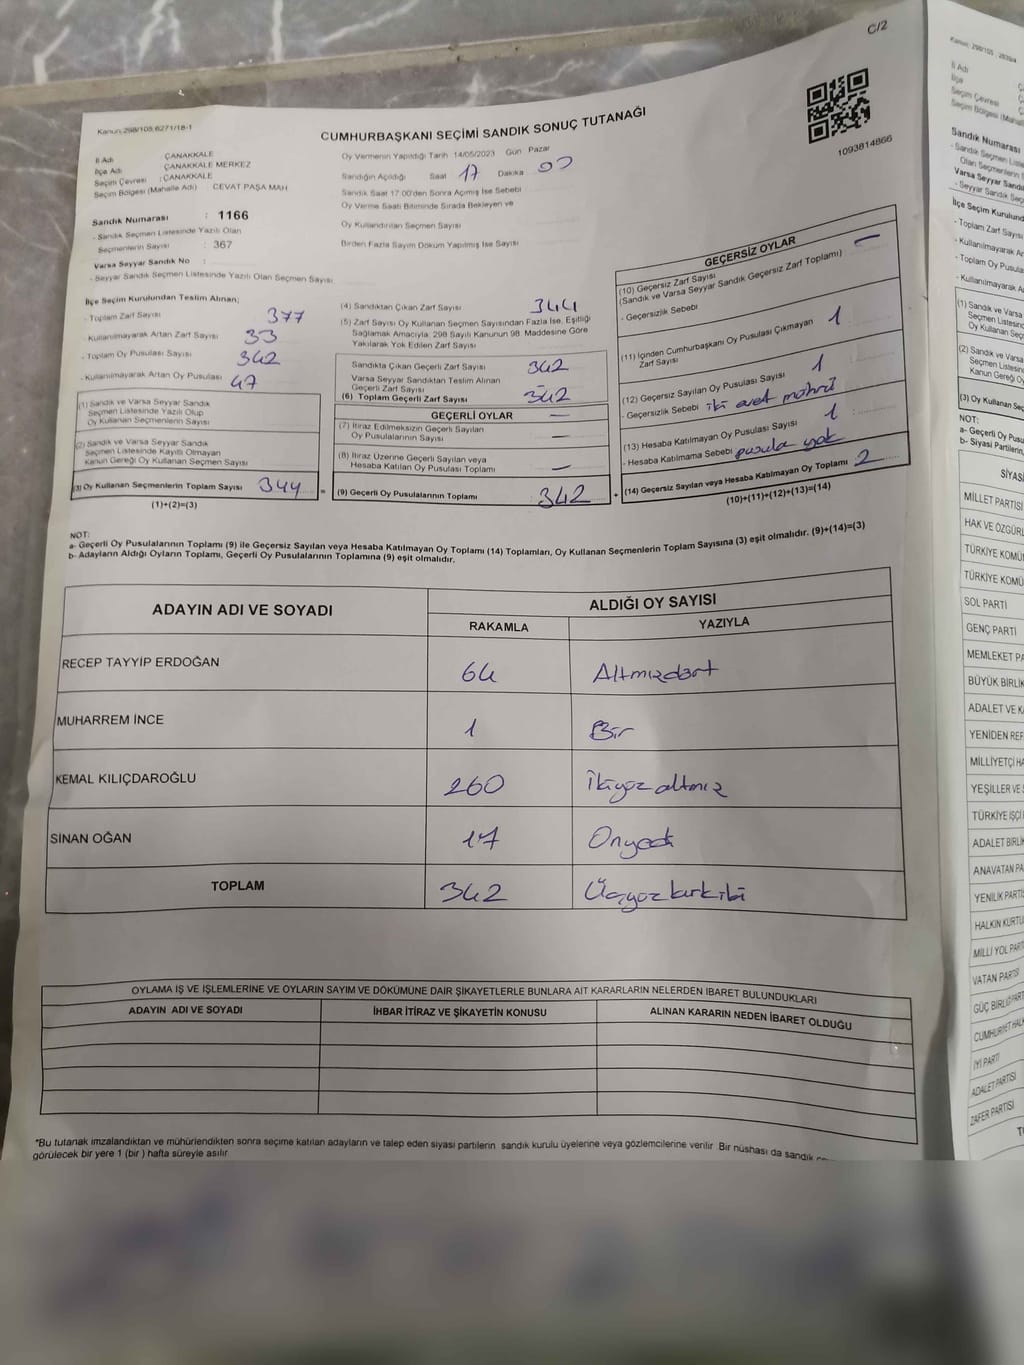 C/2
Kanun:298/105;6271/18-1
CUMHURBAŞKANI SEÇİMİ SANDIK SONUÇ TUTANAĞI
1093814866
İl Adı : ÇANAKKALE
İlçe Adı : ÇANAKKALE MERKEZ
Seçim Çevresi : ÇANAKKALE
Seçim Bölgesi (Mahalle Adı) : CEVAT PAŞA MAH.
Sandık Numarası : 1166
- Sandık Seçmen Listesinde Yazılı Olan
Seçmenlerin Sayısı : 367
Varsa Seyyar Sandık No :
- Seyyar Sandık Seçmen Listesinde Yazılı Olan Seçmen Sayısı
Oy Vermenin Yapıldığı Tarih 14/05/2023 Gün Pazar
Sandığın Açıldığı Saat 17 Dakika 00
Sandık Saat 17:00'den Sonra Açılmış İse Sebebi
Oy Verme Saati Bitiminde Sırada Bekleyen ve
Oy Kullandırılan Seçmen Sayısı
Birden Fazla Sayım Döküm Yapılmış İse Sayısı
İlçe Seçim Kurulundan Teslim Alınan;
- Toplam Zarf Sayısı 377
- Kullanılmayarak Artan Zarf Sayısı 33
- Toplam Oy Pusulası Sayısı 342
- Kullanılmayarak Artan Oy Pusulası 47
(1) Sandık ve Varsa Seyyar Sandık
Seçmen Listesinde Yazılı Olup
Oy Kullanan Seçmenlerin Sayısı
(2) Sandık ve Varsa Seyyar Sandık
Seçmen Listesinde Kayıtlı Olmayan
Kanun Gereği Oy Kullanan Seçmen Sayısı
(3) Oy Kullanan Seçmenlerin Toplam Sayısı 344
(1)+(2)=(3)
(4) Sandıktan Çıkan Zarf Sayısı 344
(5) Zarf Sayısı Oy Kullanan Seçmen Sayısından Fazla İse, Eşitliği
Sağlamak Amacıyla; 298 Sayılı Kanunun 98. Maddesine Göre
Yakılarak Yok Edilen Zarf Sayısı
Sandıkta Çıkan Geçerli Zarf Sayısı 342
Varsa Seyyar Sandıktan Teslim Alınan
Geçerli Zarf Sayısı
(6) Toplam Geçerli Zarf Sayısı 342
GEÇERLİ OYLAR —
(7) İtiraz Edilmeksizin Geçerli Sayılan
Oy Pusulalarının Sayısı —
(8) İtiraz Üzerine Geçerli Sayılan veya
Hesaba Katılan Oy Pusulası Toplamı —
= (9) Geçerli Oy Pusulalarının Toplamı 342
GEÇERSİZ OYLAR
(10) Geçersiz Zarf Sayısı —
(Sandık ve Varsa Seyyar Sandık Geçersiz Zarf Toplamı)
- Geçersizlik Sebebi
(11) İçinden Cumhurbaşkanı Oy Pusulası Çıkmayan 1
Zarf Sayısı
(12) Geçersiz Sayılan Oy Pusulası Sayısı 1
- Geçersizlik Sebebi iki evet mührü
(13) Hesaba Katılmayan Oy Pusulası Sayısı 1
- Hesaba Katılmama Sebebi pusula yok
+ (14) Geçersiz Sayılan veya Hesaba Katılmayan Oy Toplamı 2
(10)+(11)+(12)+(13)=(14)
NOT:
a- Geçerli Oy Pusulalarının Toplamı (9) ile Geçersiz Sayılan veya Hesaba Katılmayan Oy Toplamı (14) Toplamları, Oy Kullanan Seçmenlerin Toplam Sayısına (3) eşit olmalıdır. (9)+(14)=(3)
b- Adayların Aldığı Oyların Toplamı, Geçerli Oy Pusulalarının Toplamına (9) eşit olmalıdır.
ADAYIN ADI VE SOYADI ALDIĞI OY SAYISI
RAKAMLA YAZIYLA
RECEP TAYYİP ERDOĞAN 64 Altmışdört
MUHARREM İNCE 1 Bir
KEMAL KILIÇDAROĞLU 260 İkiyüz altmış
SİNAN OĞAN 17 Onyedi
TOPLAM 342 Üçyüzkırkiki
OYLAMA İŞ VE İŞLEMLERİNE VE OYLARIN SAYIM VE DÖKÜMÜNE DAİR ŞİKAYETLERLE BUNLARA AİT KARARLARIN NELERDEN İBARET BULUNDUKLARI
ADAYIN ADI VE SOYADI İHBAR İTİRAZ VE ŞİKAYETİN KONUSU ALINAN KARARIN NEDEN İBARET OLDUĞU
*Bu tutanak imzalandıktan ve mühürlendikten sonra seçime katılan adayların ve talep eden siyasi partilerin sandık kurulu üyelerine veya gözlemcilerine verilir. Bir nüshası da sandık
görülecek bir yere 1 (bir ) hafta süreyle asılır
İl Adı
İlçe
Seçim Çevresi
Seçim Bölgesi (Mahalle
Sandık Numarası
NOT:
MİLLET PARTİSİ
HAK VE ÖZGÜR
TÜRKİYE KOMÜ
TÜRKİYE KOMÜ
SOL PARTİ
GENÇ PARTİ
MEMLEKET PA
BÜYÜK BİRLİK
ADALET VE KA
YENİDEN REF
MİLLİYETÇİ HA
YEŞİLLER VE S
TÜRKİYE İŞÇİ
ADALET BİRLİK
ANAVATAN PA
YENİLİK PARTİS
HALKIN KURTU
MİLLİ YOL PARTİ
VATAN PARTİSİ
GÜÇ BİRLİĞİ PART
CUMHURİYET HALK
İYİ PARTİ
ADALET PARTİSİ
ZAFER PARTİSİ